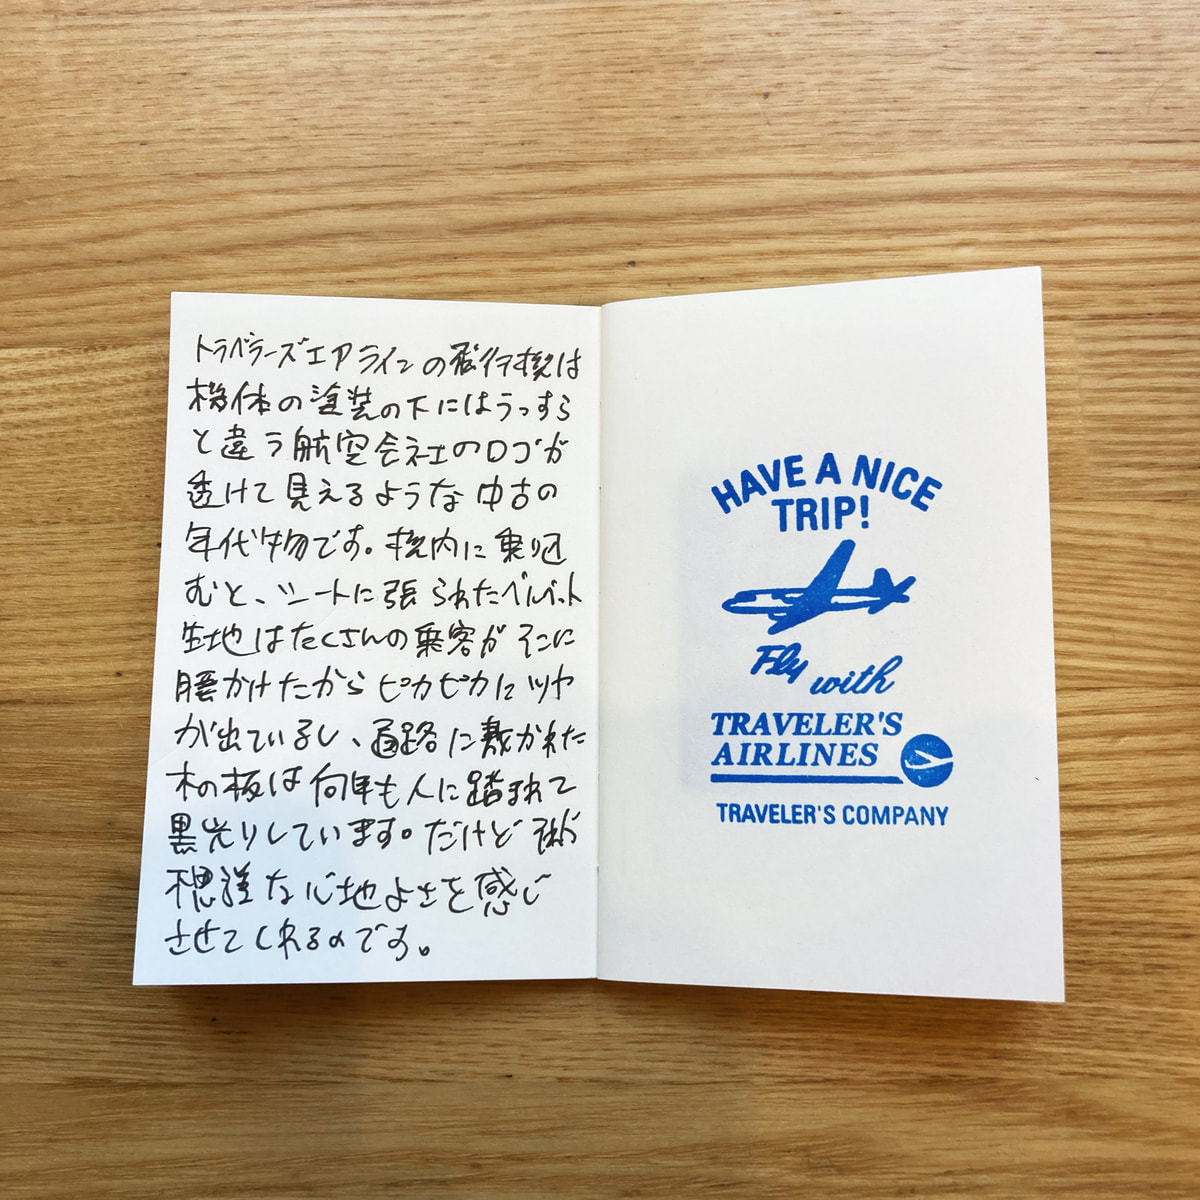 トラベラーズエアラインの飛行機は
機体の塗装の下にはうっすら
と違う航空会社のロゴが
透けて見えるような中古の
年代物です。機内に乗り込
むと、シートに張られたベルベット
生地はたくさんの乗客がそこに
腰かけたからピカピカにツヤ
が出ているし、通路に敷かれた
木の板は何年も人に踏まれて
黒光りしています。だけど
不思議な心地よさを感じ
させてくれるのです。
HAVE A NICE
TRIP!
Fly with
TRAVELER'S
AIRLINES
TRAVELER'S COMPANY